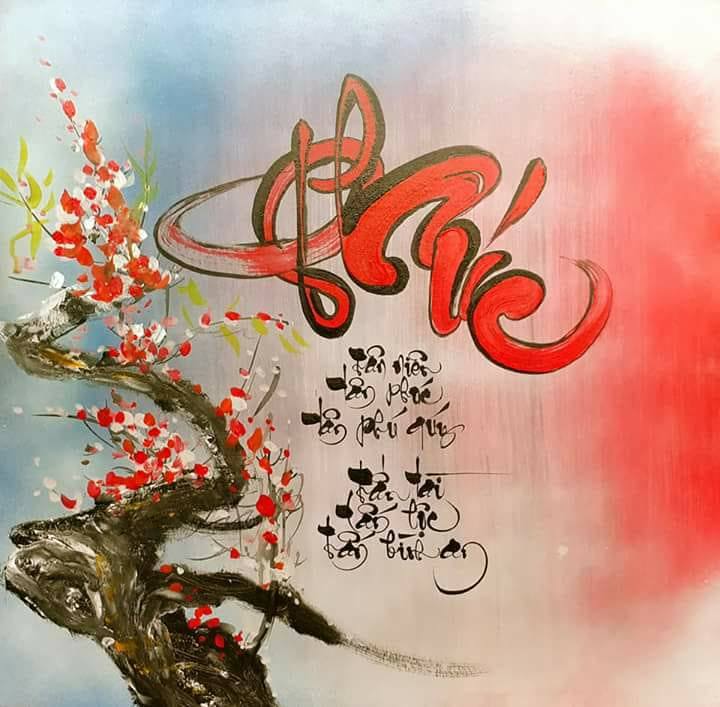 Phúc
tân niên
tân phúc
tân phú quý
tấn tài
tấn lộc
tấn bình an